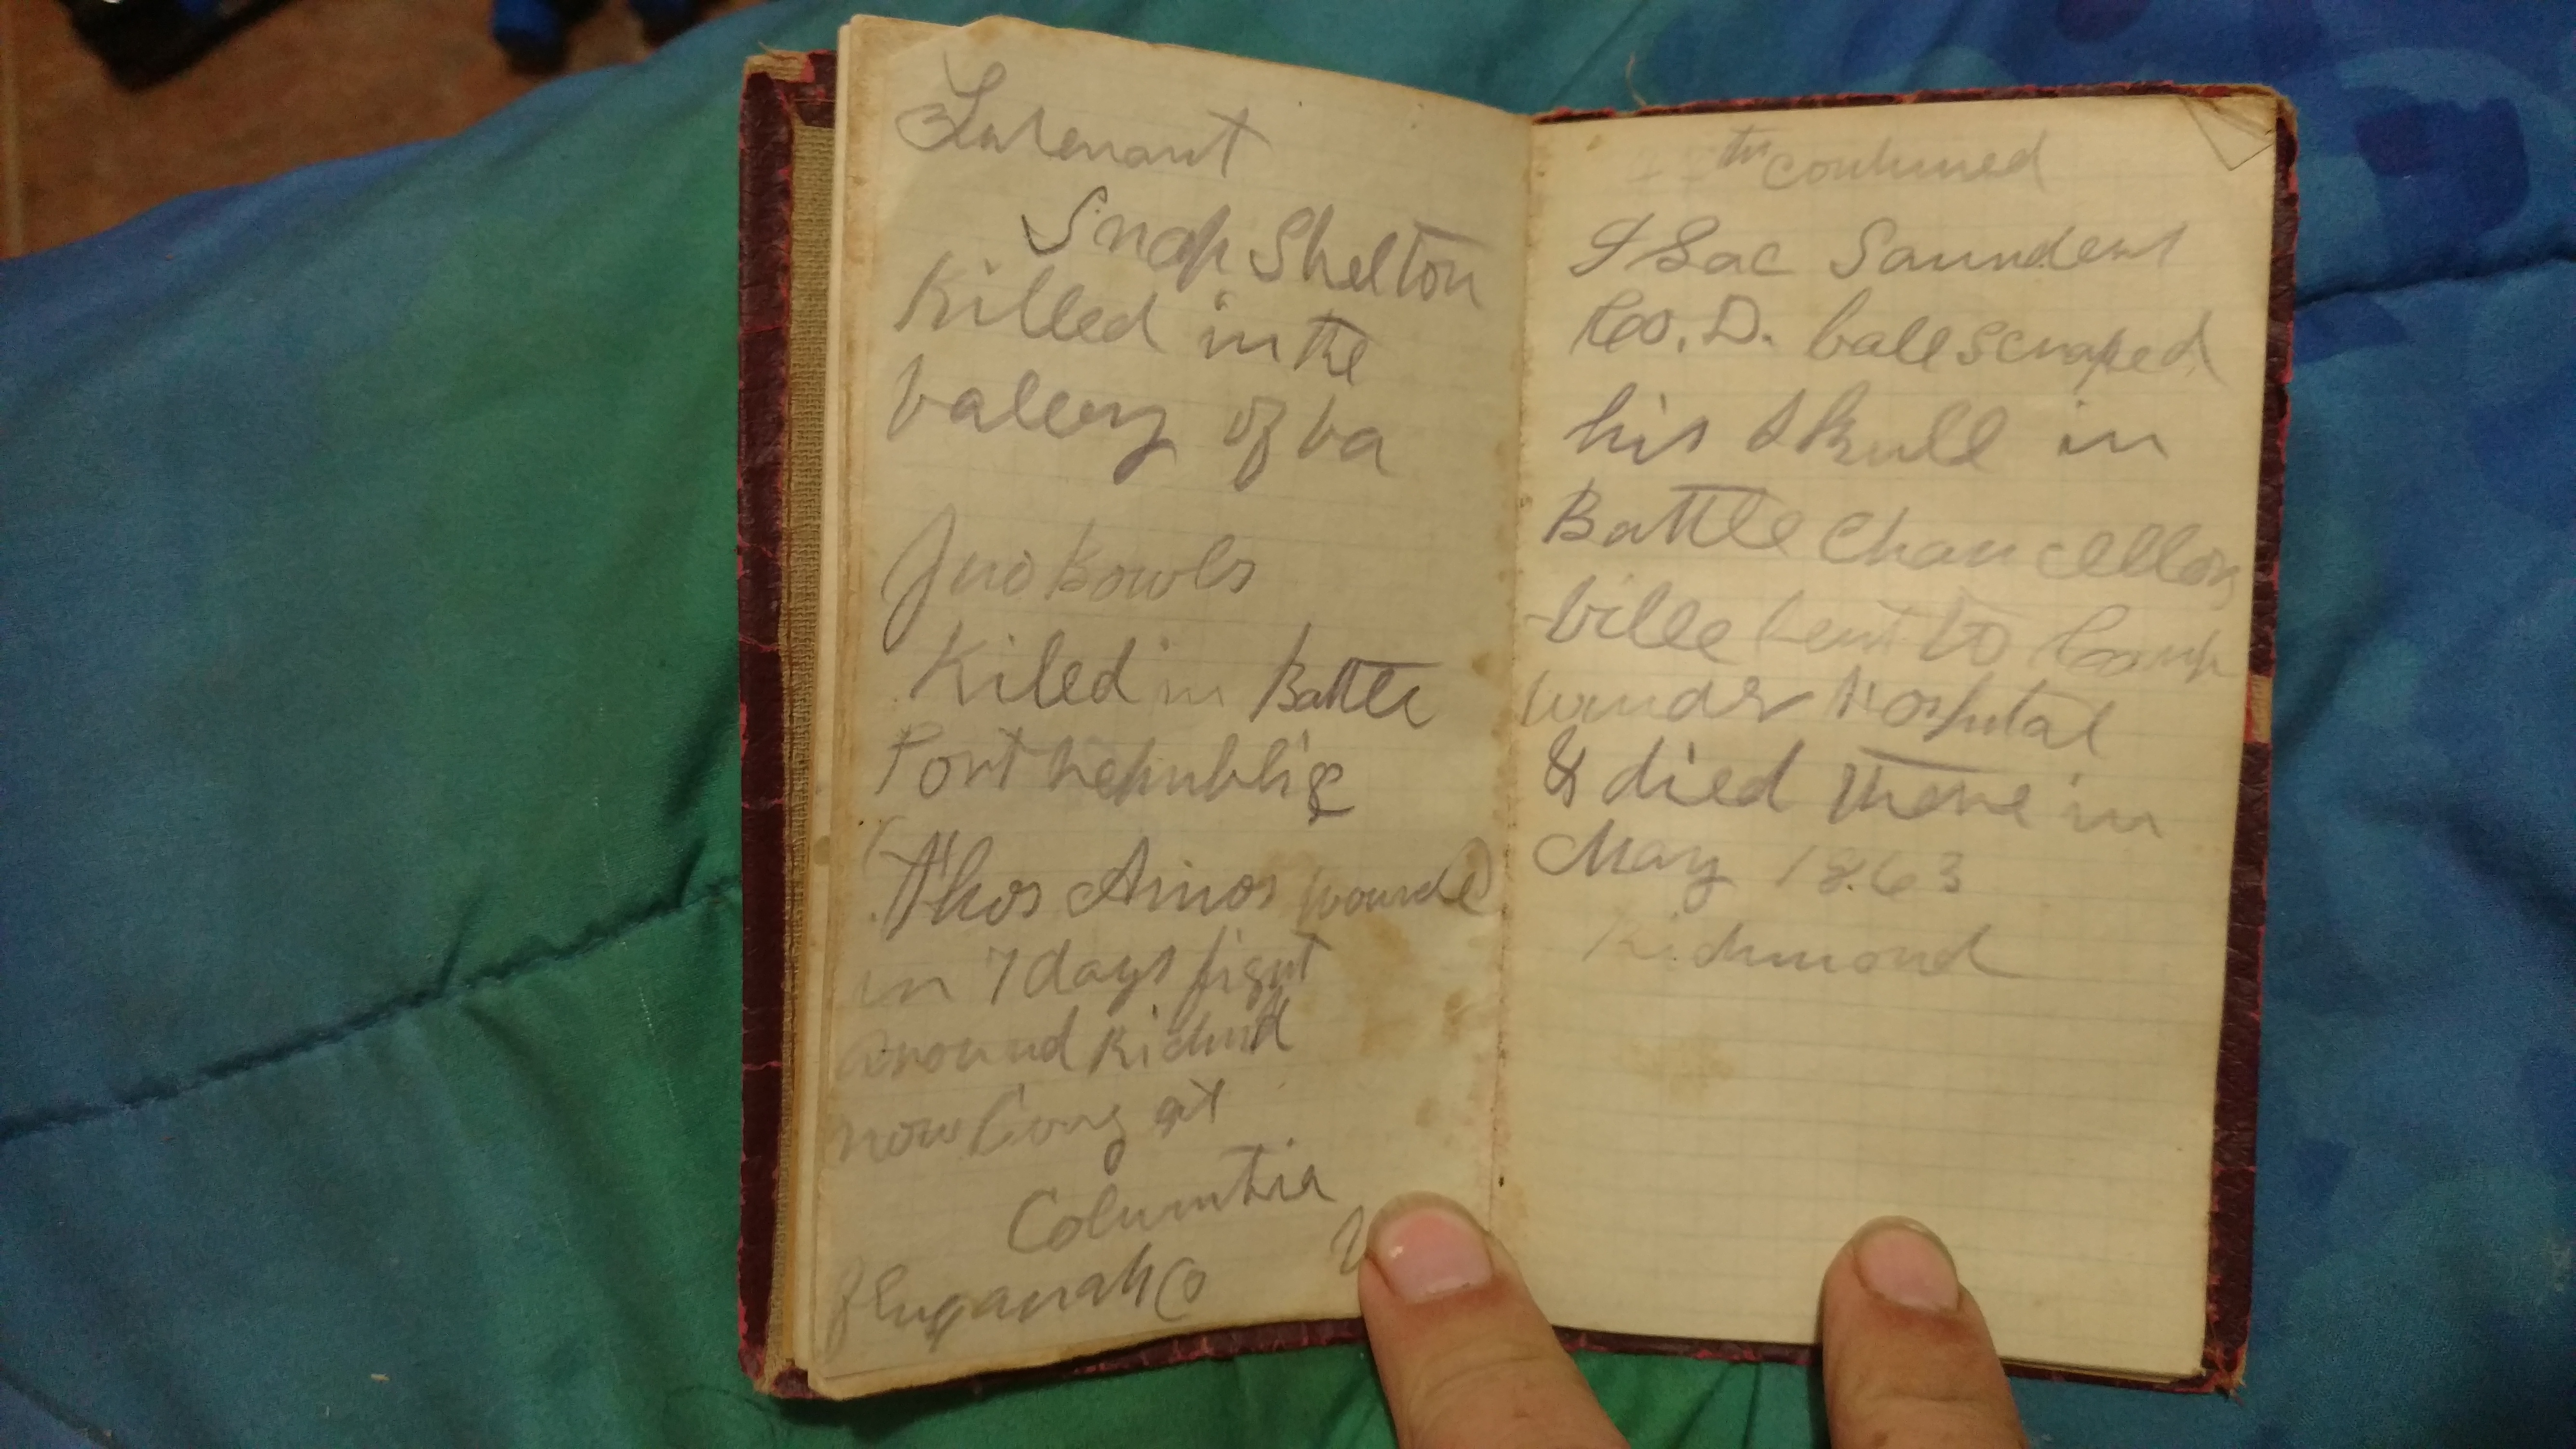 Lutenant
Snap Shelton
Killed in the
valley of va
Jno Bowls
Kiled in Battle
Port Republic
Thos Amos wounded
in 7 days fight
around Richmd
now living at
Columbia
fluvanah Co
th continued
Isac Saunders
Co. D. ball scraped
his skull in
Battle Chancellors
-ville sent to Camp
winder Hospital
& died there in
May 1863
Richmond